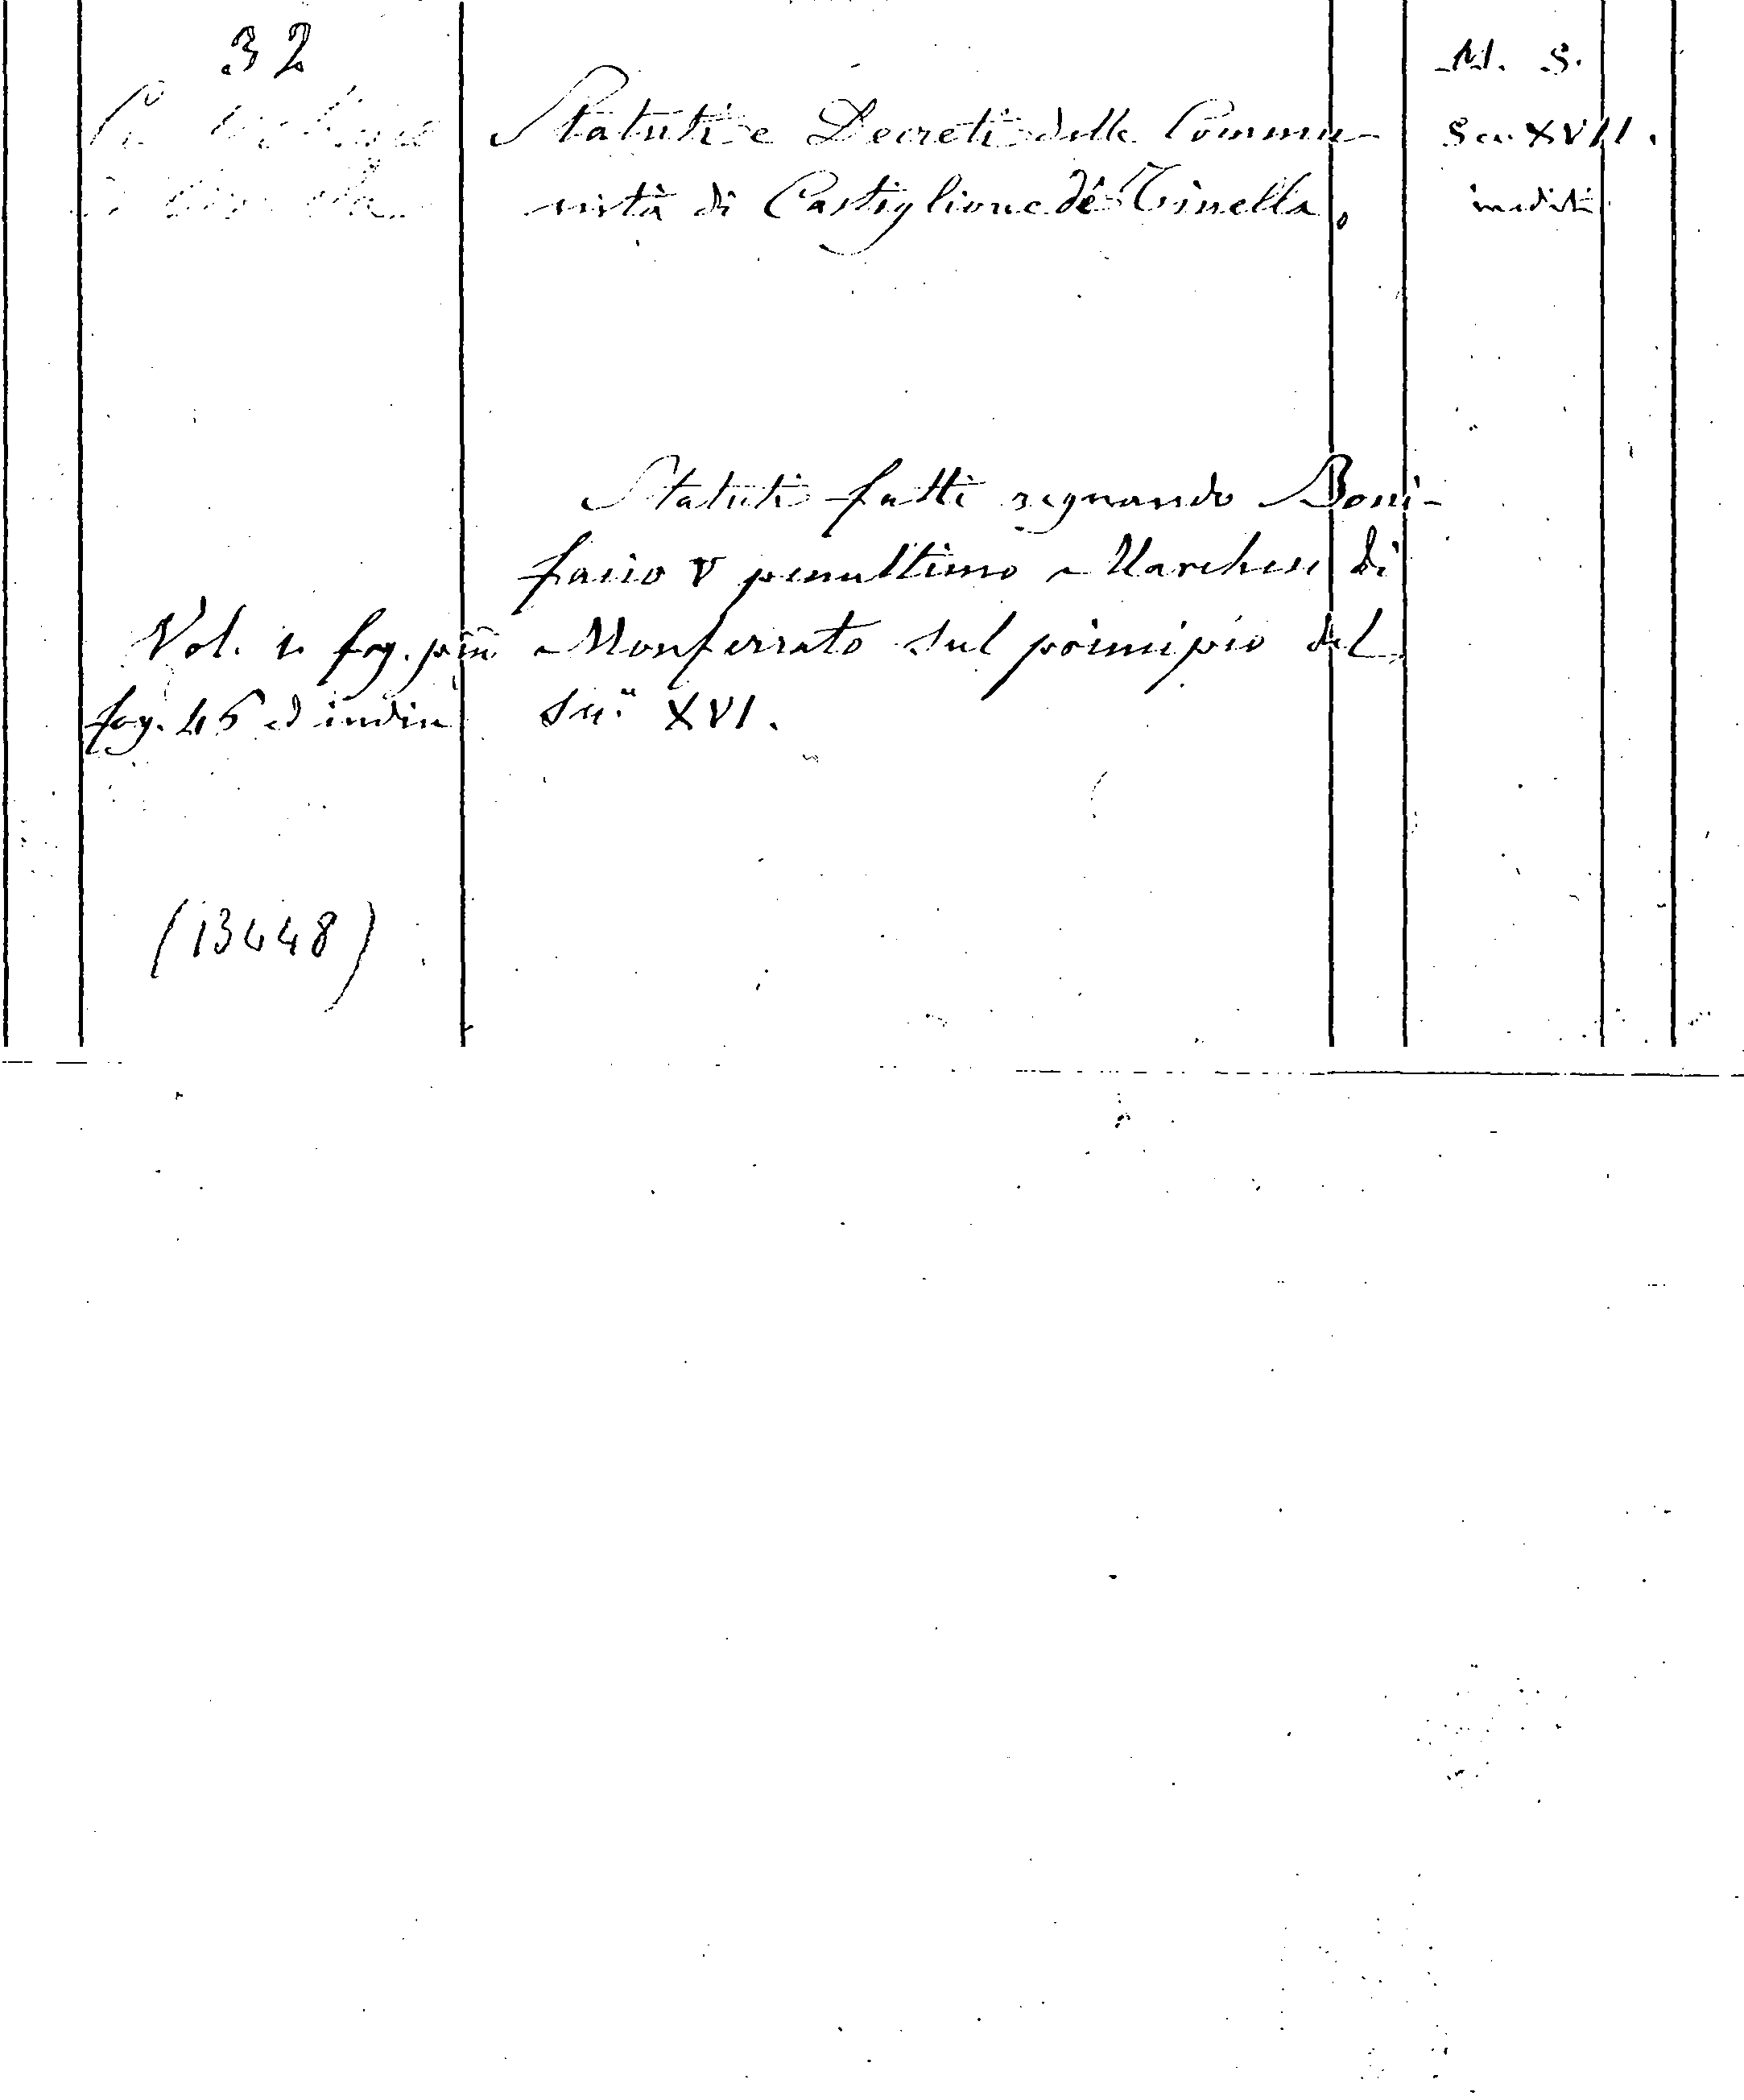 32
M. S.
Statuti e Decreti della Commu-
Sec XVII.
nità di Castiglione de Tinella.
inediti
Statuti fatti regnando Boni-
facio V penultimo Marchese di
Vol. 1. fog. pm̄o
Monferrato sul principio del
fog. 45 ed indice
Sec.º XVI.
(13448)